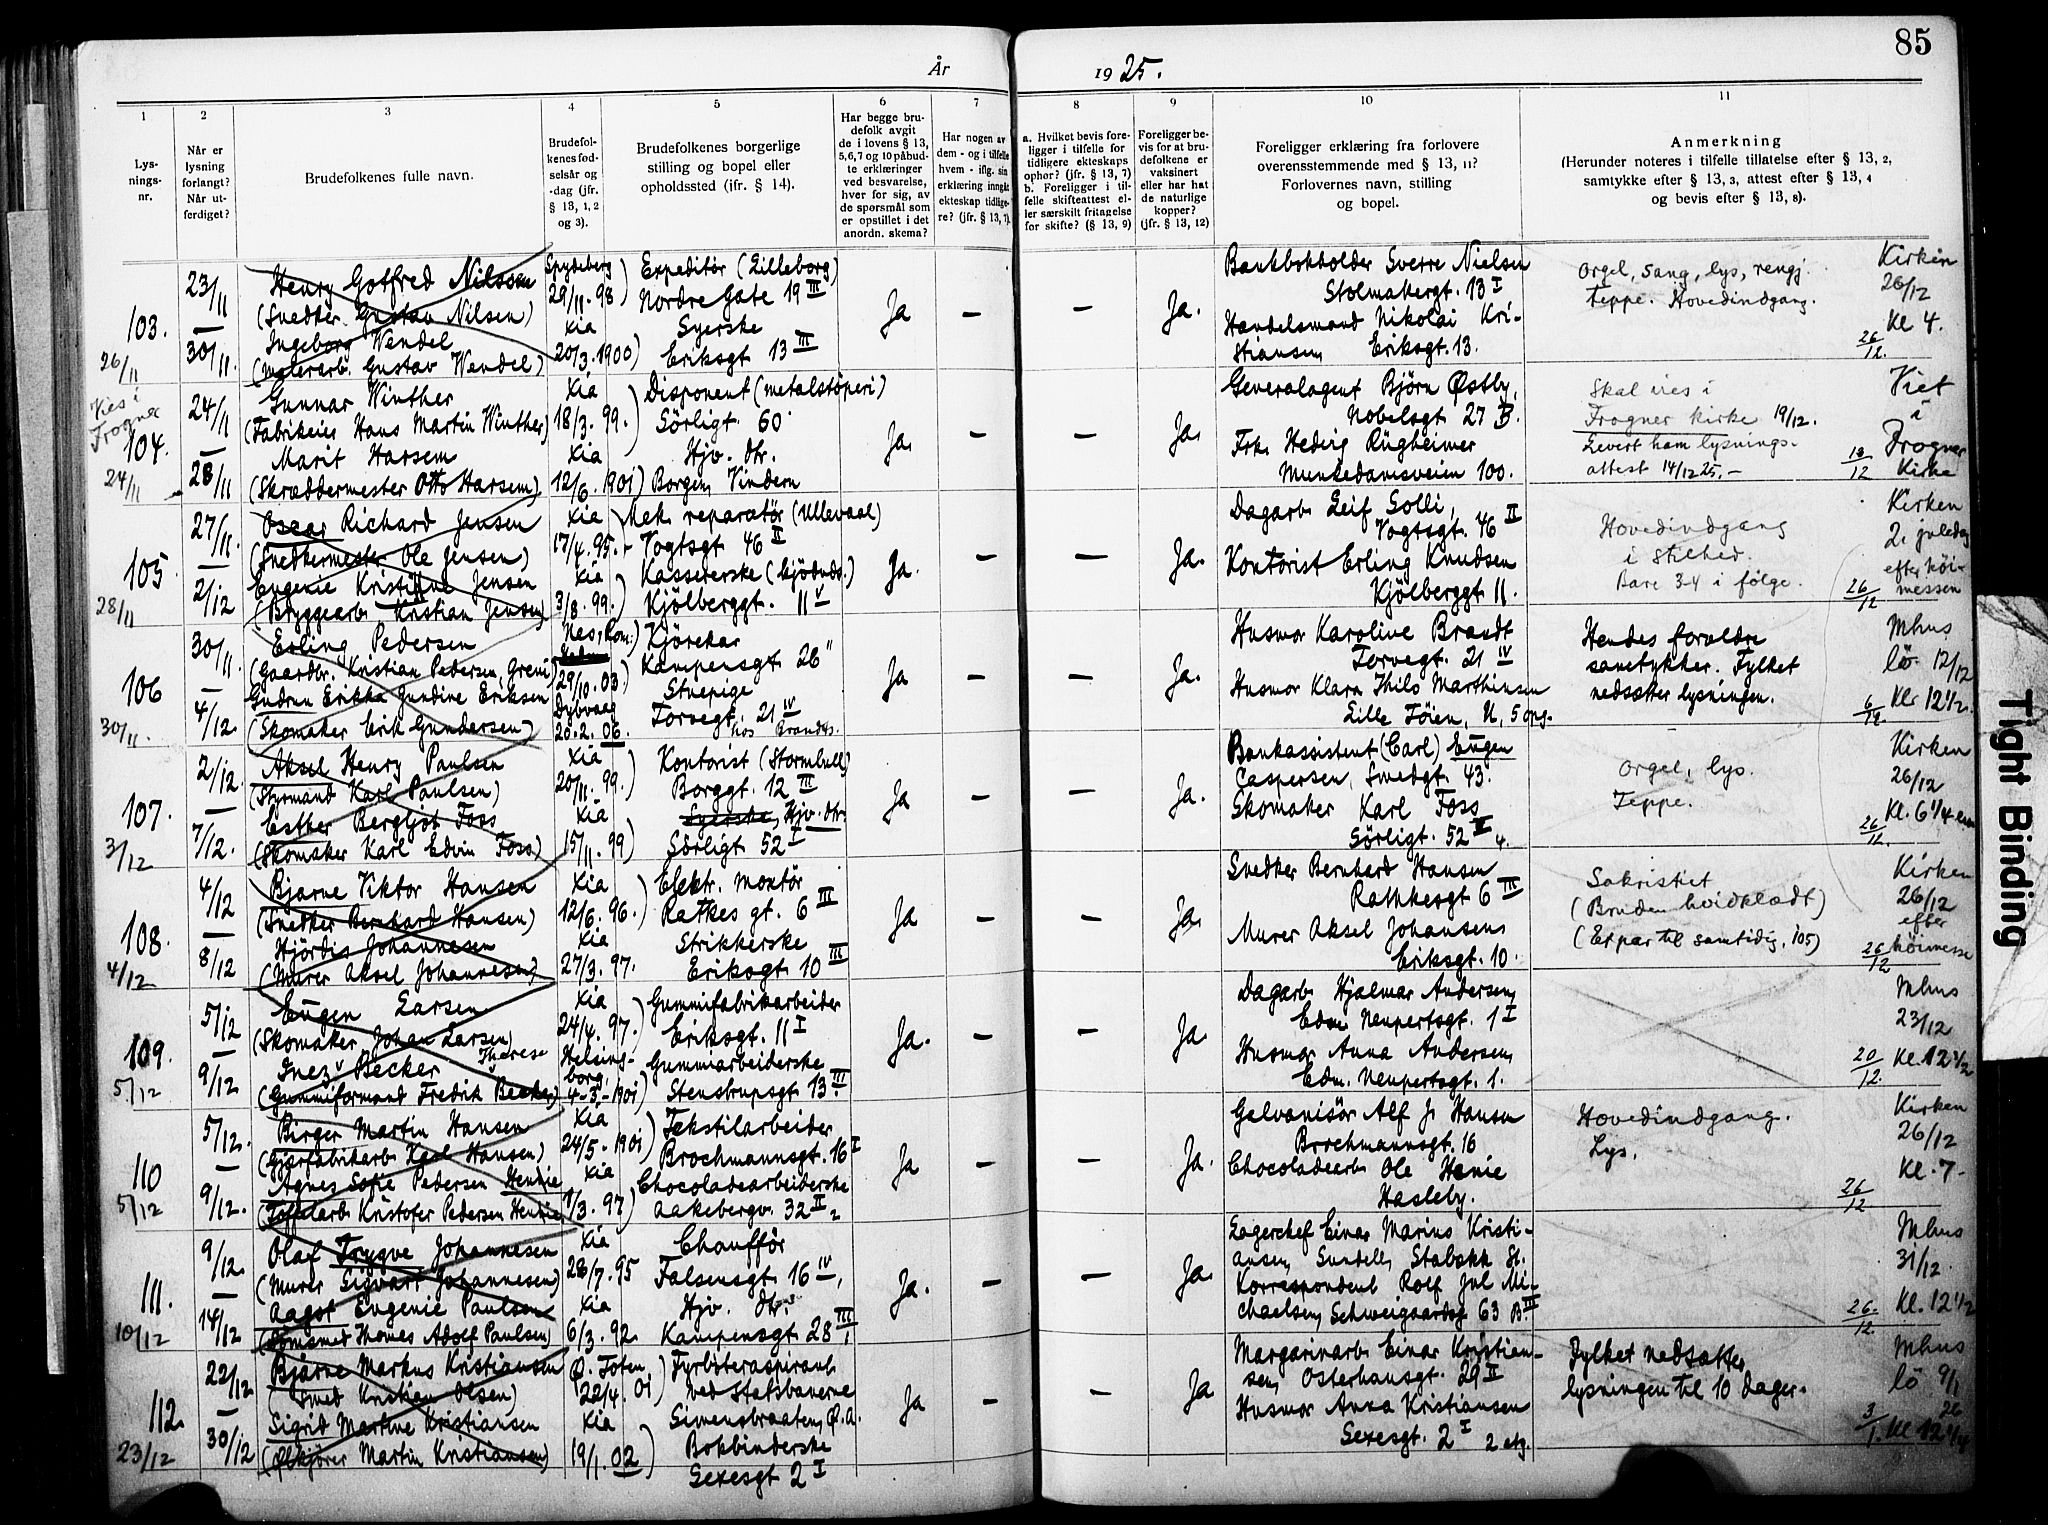 85
År
19 25.
1
2
3
4
5
6
7
8
9
10
11
Lys-
nings-
nr.
Når er
lysning
forlangt?
Når ut-
ferdiget?
Brudefolkenes fulle navn.
Brudefol-
kenes fød-
selsår og
-dag (jfr.
§ 13, 1, 2
og 3).
Brudefolkenes borgerlige
stilling og bopel eller
opholdssted (jfr. § 14).
Har begge bru-
defolk avgit
de i lovens § 13,
5, 6, 7 og 10 påbud-
te erklæringer
ved besvarelse,
hver for sig, av
de spørsmål som
er opstillet i det
anordn. skema?
Har nogen av
dem - og i tilfelle
hvem - iflg. sin
erklæring inngåt
ekteskap tidlige-
re? (jfr. § 13, 7).
a. Hvilket bevis fore-
ligger i tilfelle for
tidligere ekteskaps
ophør? (jfr. § 13, 7)
b. Foreligger i til-
felle skifteattest el-
ler særskilt fritagelse
for skifte? (§ 13, 9)
Foreligger be-
vis for at bru-
defolkene er
vaksinert
eller har hat
de naturlige
kopper?
(jfr. § 13, 12)
Foreligger erklæring fra forlovere
overensstemmende med § 13, 11?
Forlovernes navn, stilling
og bopel.
Anmerkning
(Herunder noteres i tilfelle tillatelse efter § 13, 2,
samtykke efter § 13, 3, attest efter § 13, 4
og bevis efter § 13, 8).
103.
26/11
23/11
30/11.
Henry Gotfred Nilsson
(Snedker Gustav Nilsen)
Ingeborg Wendel
(Malerarb. Gustav Wendel)
Spydeberg
29/11. 98)
Kia
20/3. 1900)
Expeditör (Lilleborg)
Nordre Gate 19 III
Syerske
Eriksgt 13 III
Ja
–
–
Ja.
Bankbokholder Sverre Nielsen
Stolmakergt. 13 I
Handelsmand Nikolai Kri-
stiansen, Eriksgt. 13.
Orgel, sang, lys, rengj.
Teppe. Hovedindgang.
Kirken
26/12
Kl 4.
26/12.
Vies i
Frogner
104.
24/11
24/11
28/11
Gunnar Winther
(Fabrikeier Hans Martin Winther)
Marit Harsem
(Skræddermester Otto Harsem)
Kia
18/3. 99.)
Kia
12/6. 1901)
Disponent (metalstöperi)
Sörligt. 60
Hjv. dtr.
Borgen, Vindern
Ja.
–
–
Ja.
Generalagent Björn Østby,
Nobelsgt 27 B.
Frk. Hedvig Rügheimer
Munkedamsveien 100.
Skal vies i
Frogner kirke 19/12.
Levert ham lysnings-
attest 14/12 25.–
Viet
i
Frogner
Kirke
19/12
105.
28/11
27/11.
2/12
Oscar Richard Jensen
(Snedkermester Ole Jensen)
Eugenie Kristine Jensen
(Bryggearb. Kristian Jensen)
Kia
17/4. 95.
Kia
3/8. 99.)
Mek. reparatör (Ullevaal)
Vogtsgt 46 II
Kassererske
Kjölberggt. 11 V
Ja.
–
–
Ja.
Dagarb. Leif Solli,
Vogtsgt. 46 II
Kontorist Erling Knudsen
Kjölberggt 11.
Hovedindgang
i stilhed.
Bare 3-4 i följe.
Kirken
2. juledag
efter höi-
messen
26/12
106
30/11.
30/11.
4/12.
Erling Pedersen
(Gaardbr. Kristian Pedersen, Greni)
Gudrun Erikka Gundine Eriksen
(Skomaker Erik Gundersen)
Nes, Rom.)
29/10. 03)
Dybvaag
20. 2. 06.
Kjörekar
Kampensgt. 26
Stuepige
Torvegt. 21 IV
hos Brandt.
Ja
–
–
Ja.
Husmor Karoline Brandt
Torvegt. 21 IV
Husmor Klara Thilo Marthinsen
Lille Töien, N, 5 opg.
Hendes forældre
samtykker. Fylket
nedsætter lysningen.
Mhus
lö. 12/12
Kl. 12 1/2.
6/12.
107.
3/12
2/12.
7/12.
Aksel Henry Paulsen
(Styrmand Karl Paulsen)
Esther Bergljot Foss
(Skomaker Karl Edvin Foss)
Kia
20/11. 99.)
Kia
15/11. 99)
Kontorist (Stormbull)
Borggt. 12 III
Syerske, Hjv. dtr.
Sörligt. 52 I
Ja
–
–
Ja.
Bankassistent (Carl) Eugen
Caspersen, Smedgt. 43.
Skomaker Karl Foss
Sörligt. 52 V 4.
Orgel, lys.
Teppe.
Kirken
26/12
Kl. 6 1/4 em
26/12.
108.
4/12
4/12
8/12
Bjarne Viktor Hansen
(Snedker Bernhard Hansen)
Hjördis Johannesen
(Murer Aksel Johannesen)
Kia
12/6. 96.)
Kia
27/3. 97.
Elektr. montör
Ratkes gt. 6 III
Strikkerske
Eriksgt. 10 III
Ja
–
–
Ja.
Snedker Bernhard Hansen
Rathkesgt 6 III
Murer Aksel Johansen,
Eriksgt. 10.
Sakristiet
(Bruden hvidklædt)
(Et par til samtidig, 105)
Kirken
26/12
efter
höimesse
26/12
109.
5/12
5/12
9/12
Eugen Larsen
(Skomaker Johan Larsen)
Inez Therese Becker
(Gummiformand Fredrik Becker)
Kia
24/4. 97.)
Helsing-
borg,
4–3.–1901)
Gummifabrikarbeider
Eriksgt. 11 I
Gummiarbeiderske
Stensbrupsgt 13 III
Ja.
–
–
Ja.
Dagarb. Hjalmar Andersen,
Edm Neupertsgt. 1 I
Husmor Anna Andersen,
Edm. Neupertsgt. 1.
Mhus
23/12
Kl. 12 1/2
20/12.
110
5/12
5/12.
9/12.
Birger Martin Hansen
(Gjærfabrikarb. Karl Hansen)
Agnes Sofie Pedersen Henrie
(Töffelarb. Kristofer Pedersen Henrie)
Kia
24/5. 1901)
Kia
1/3. 97)
Tekstilarbeider
Brochmannsgt. 16 I
Chocoladearbeiderske
Aakebergv. 32 II 2
Ja
–
–
Ja.
Galvanisör Alf J. Hansen
Brochmannsgt. 16
Chocoladearb. Ole Henie
Hasleby.
Hovedindgang.
Lys.
Kirken
26/12
Kl. 7–
26/12
111.
10/12
9/12.
14/12
Olaf Trygve Johannesen
(Murer Sigvart Johannesen)
Aagot Eugenie Paulsen
(Thomas Adolf Paulsen)
Kia
28/7. 95
Kia
6/3. 92.
Chaufför
Falsensgt. 16 IV,
Hjv. dtr.
Kampensgt. 28 III
Ja.
–
–
Ja.
Lagerchef Einar Marius Kristi-
ansen, Sundell, Stabekk St.
Korrespondent Rolf Jul Mi-
chaelsen, Schweigaardsg 63 B. III
Mhus
31/12.
Kl. 12 1/2
26./12.
112.
23/12
22/12
30/12
Bjarne Markus Kristiansen
(Smed Kristian Olsen)
Sigrid Martine Kristiansen
(Ølkjörer Martin Kristiansen)
Ø. Toten
22/4. 01)
Kia
19/1. 02)
Fyrböteraspirant
ved Statsbanerne
Simensbraaten, Ø.A.
Bokbinderske
Sexesgt 2 I
Ja
–
–
Ja
Margarinarb. Einar Kristian-
sen, Osterhausgt. 29 II
Husmor Anna Kristiansen
Sexesgt. 2 I 2 etg.
Fylket nedsætter
lysningen til 10 dager.
Mhus
lö 9/1 26
Kl 12 1/4
3/1.
Tight Binding